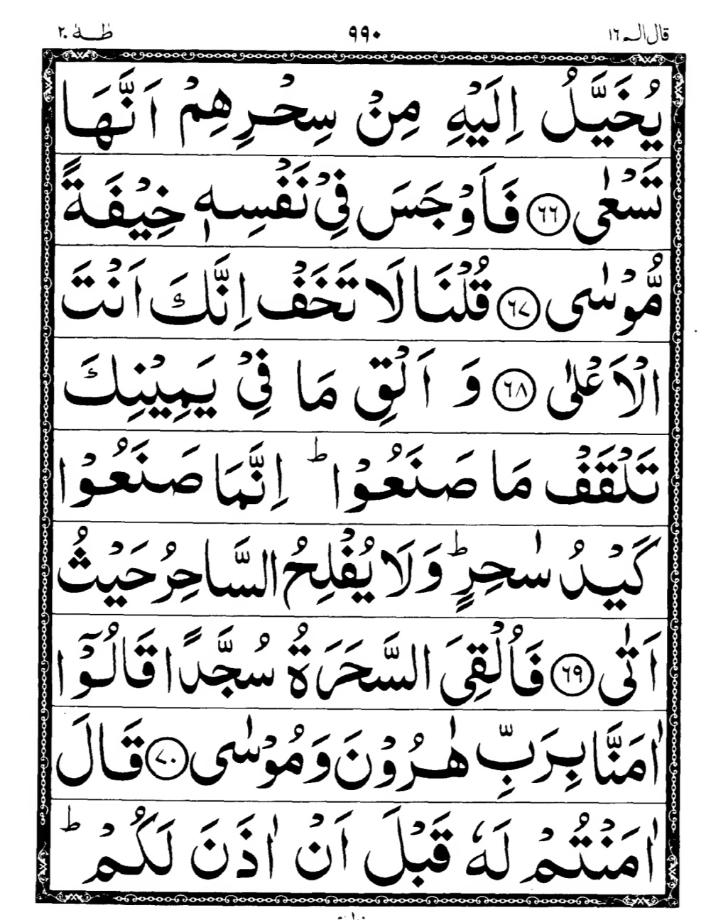 طٰهٰ ٢٠ ٩٩٠ قال الم ١٦
يُخَيَّلُ اِلَيْهِ مِنْ سِحْرِهِمْ اَنَّهَا
تَسْعٰى ﴿٦٦﴾ فَاَوْجَسَ فِيْ نَفْسِهٖ خِيْفَةً
مُّوْسٰى ﴿٦٧﴾ قُلْنَا لَا تَخَفْ اِنَّكَ اَنْتَ
الْاَعْلٰى ﴿٦٨﴾ وَ اَلْقِ مَا فِيْ يَمِيْنِكَ
تَلْقَفْ مَا صَنَعُوْا ؕ اِنَّمَا صَنَعُوْا
كَيْدُ سٰحِرٍ ؕ وَلَا يُفْلِحُ السَّاحِرُ حَيْثُ
اَتٰى ﴿٦٩﴾ فَاُلْقِيَ السَّحَرَةُ سُجَّدًا قَالُوْٓا
اٰمَنَّا بِرَبِّ هٰرُوْنَ وَمُوْسٰى ﴿٧٠﴾ قَالَ
اٰمَنْتُمْ لَهٗ قَبْلَ اَنْ اٰذَنَ لَكُمْ ؕ